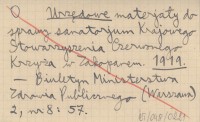 Urzędowe materjały do
sprawy sanatorjum Krajowego
Stowarzyszenia Czerwonego
Krzyża w Zakopanem. 1919.
— Biuletyn Ministerstwa
Zdrowia Publicznego (Warszawa)
2, nr 8: 57.